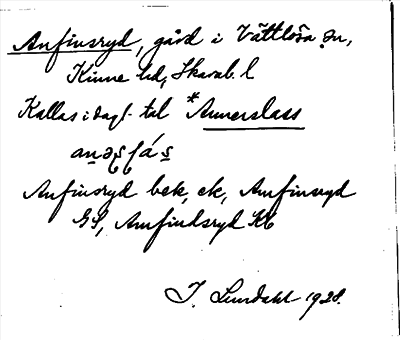 Anfinsryd, gård i Vättlösa sn,
Kinne hd, Skarab. l
Kallas i dagl. tal *Annerslass
Anfinsryd bek, ek, Amfinsryd
GS, Amfindsryd KK
I. Lundahl 1928.